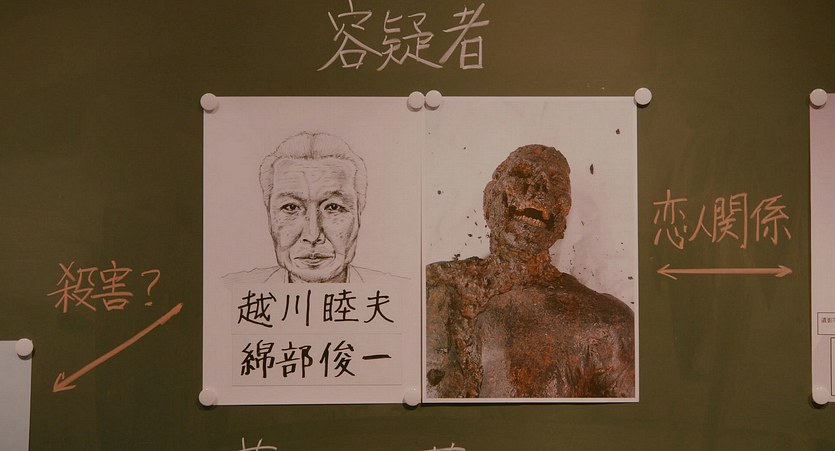 容疑者
越川睦夫
綿部俊一
殺害?
恋人関係